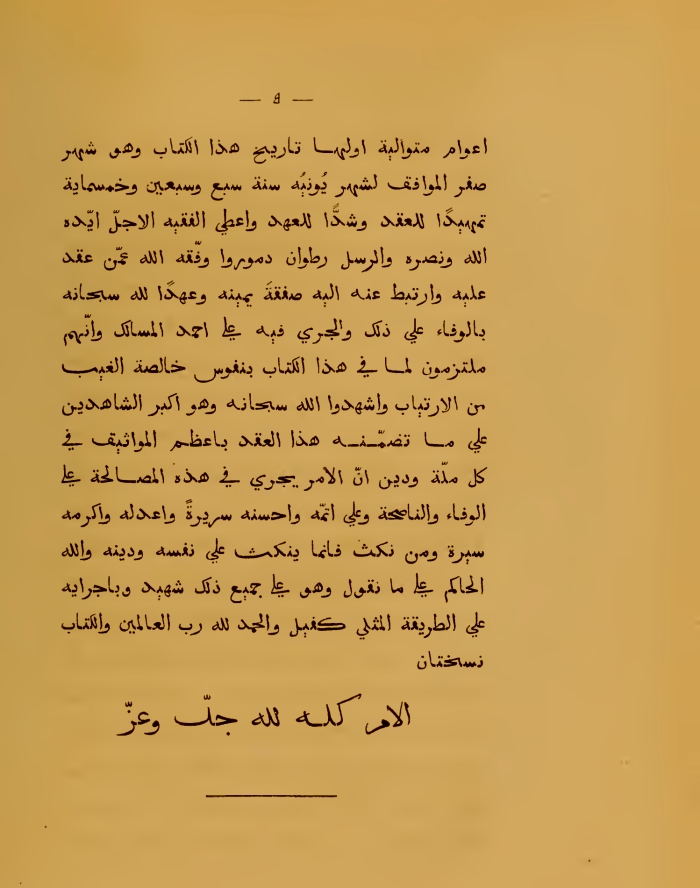 — ۴ —
اعوام متوالية اولهـا تاريخ هذا الكتاب وهو شهر
صفر الموافق لشهر يُونيُه سنة سبع وسبعين وخمسماية
تمهيدًا للعقد وشدًّا للعهد واعطي الفقيه الاجلّ ايّده
الله ونصره والرسل رطوان دموروا وفّقه الله عمّن عقد
عليه وارتبط عنه اليه صفقةَ يمينه وعهدًا لله سبحانه
بالوفاء علي ذلك والجري فيه علي احمد المسالك وانّهم
ملتزمون لمـا في هذا الكتاب بنفوس خالصة الغيب
من الارتياب واشهدوا الله سبحانه وهو اكبر الشاهدين
علي مـا تضمّنـه هذا العقد باعظم المواثيق في
كل ملّة ودين انّ الامر يجري في هذه المصـالحة علي
الوفاء والناصحة وعلي اتمّه واحسنه سريرةً واعدله واكرمه
سيرة ومن نكث فانما ينكث علي نفسه ودينه والله
الحاكم علي ما نقول وهو علي جميع ذلك شهيد وباجرايه
علي الطريقة المثلي كفيل والحمد لله رب العالمين والكتاب
نسختان
الامر كلـه لله جلّ وعزّ